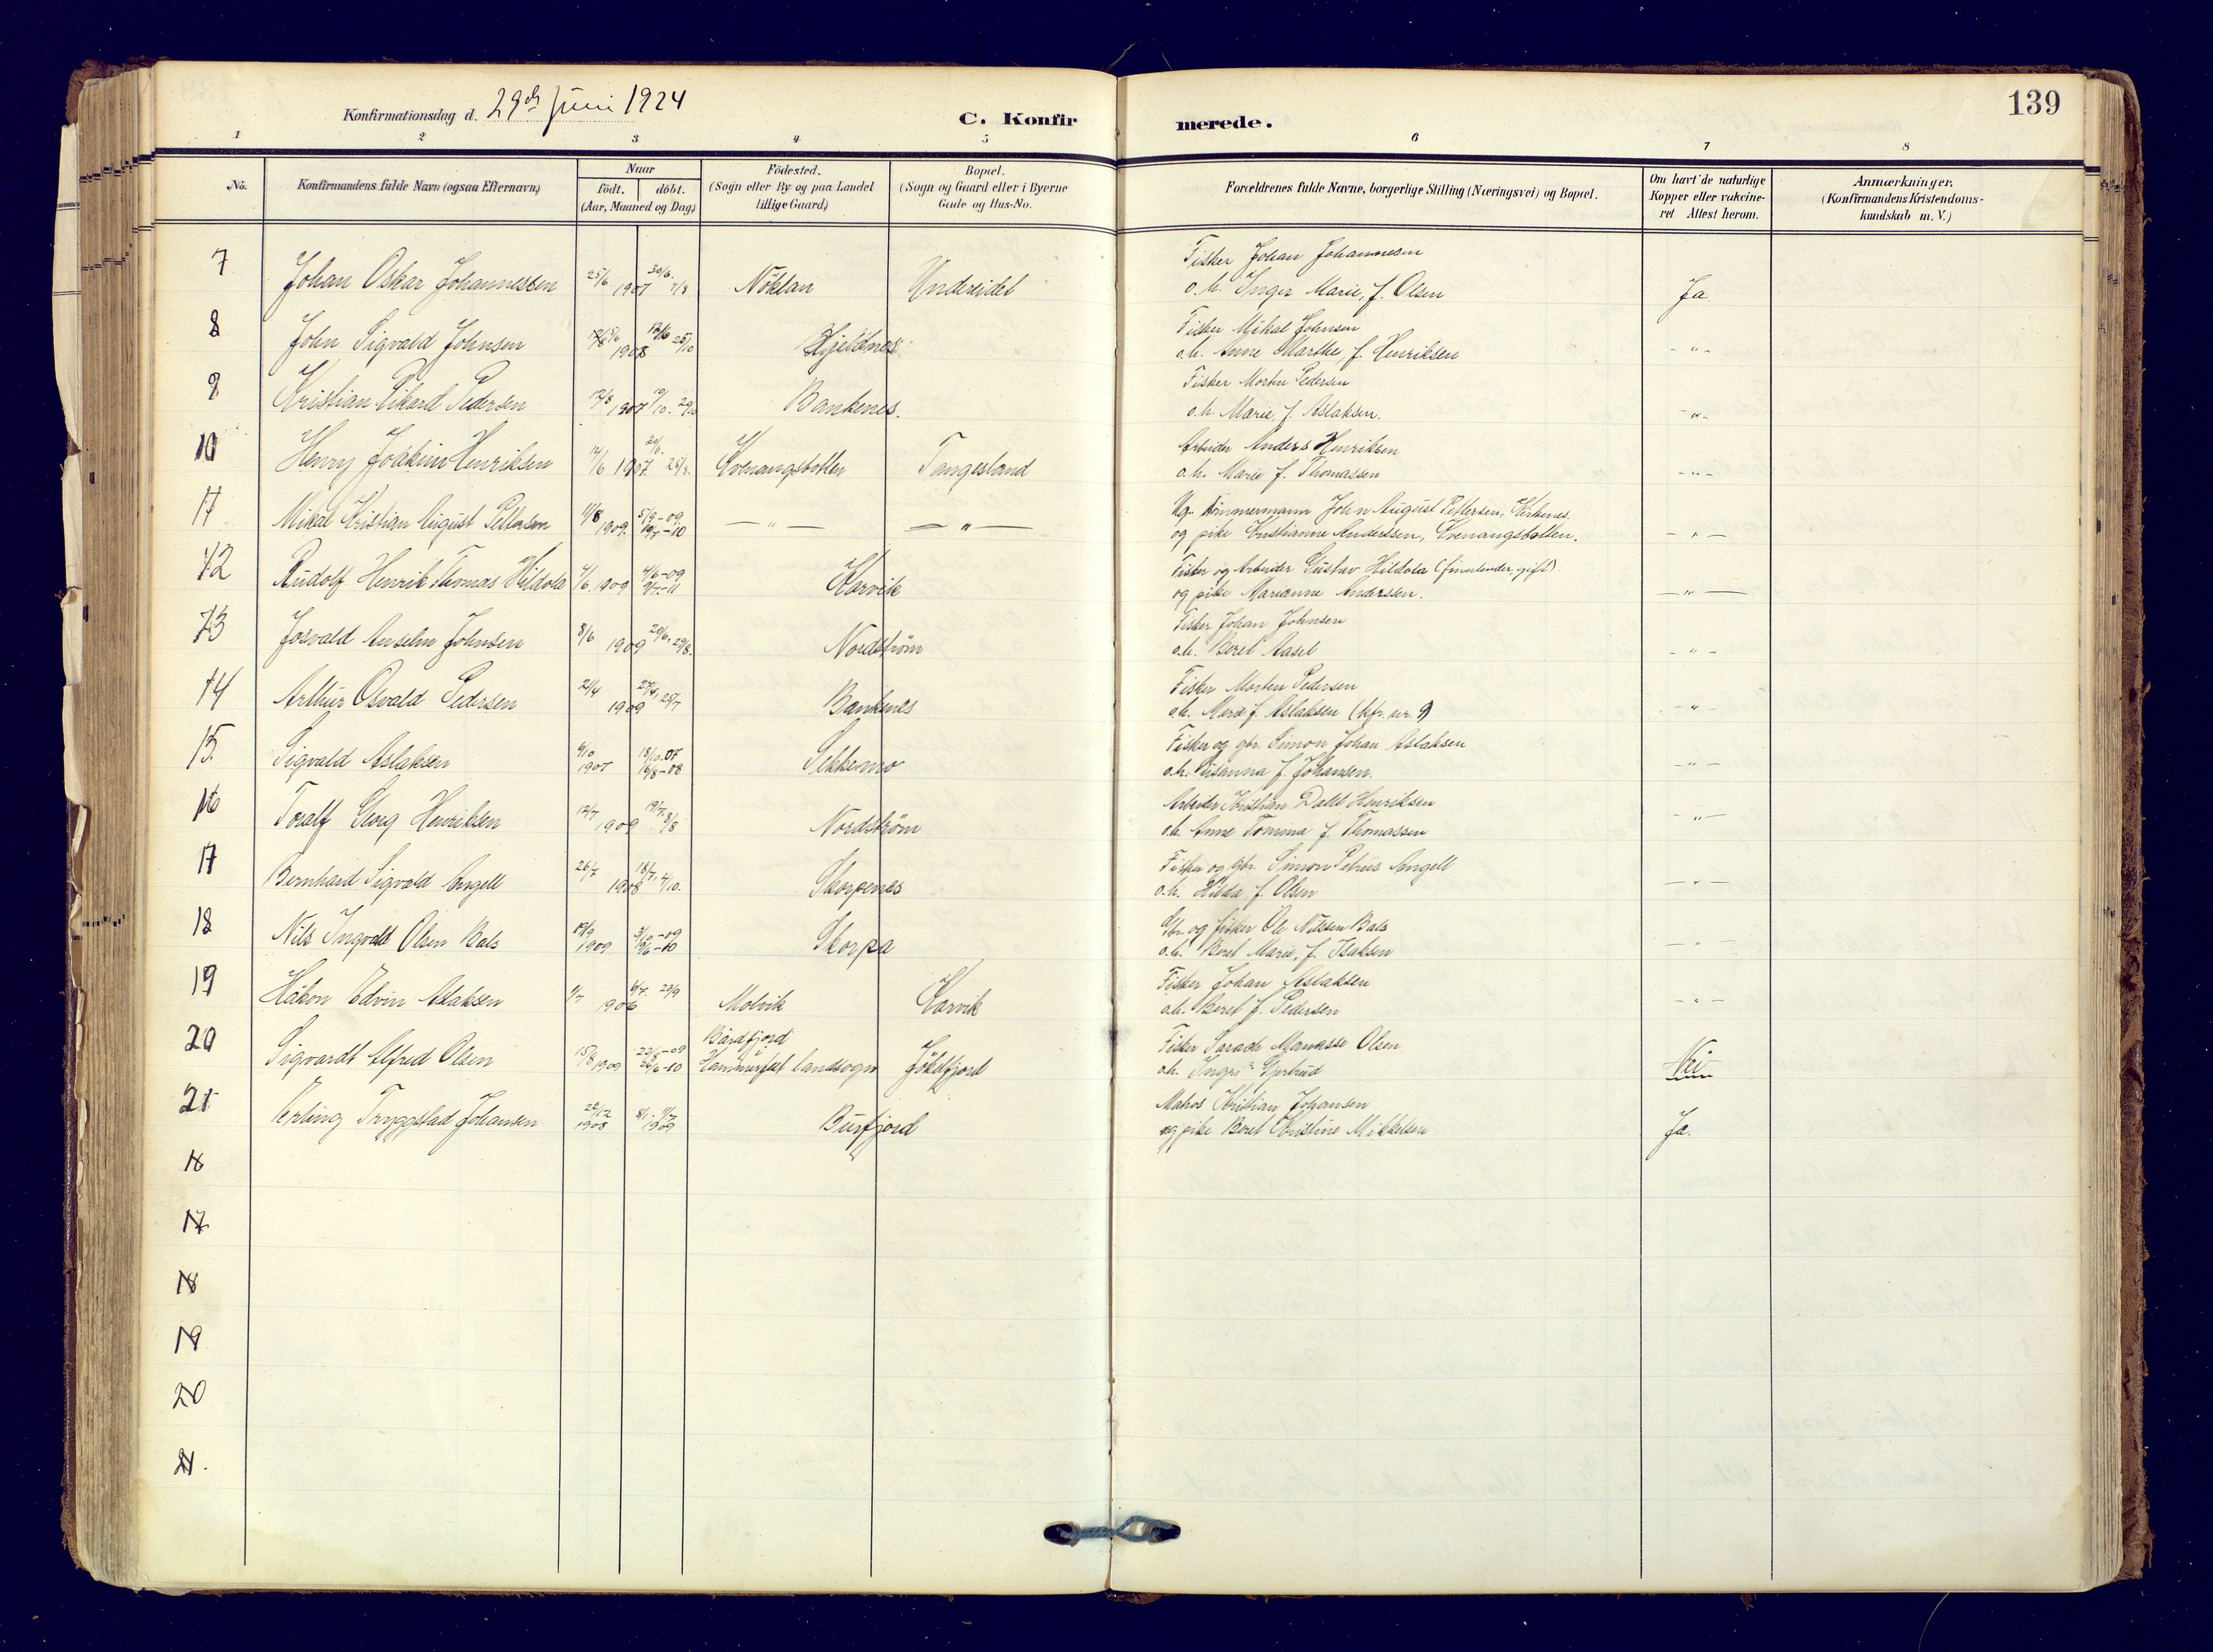 139
Konfirmationsdag d. 29de Juni 1924
C. Konfirmerede.
1 2 3 4 5 6 7 8
No.
Konfirmandens fulde Navn (ogsaa Efternavn)
Naar
födt. döbt.
(Aar, Maaned og Dag)
Födested.
(Sogn eller By og paa Landet
tillige Gaard)
Bopæl.
(Sogn og Gaard eller i Byerne
Gade og Hus-No.
Forældrenes fulde Navne, borgerlige Stilling (Næringsvei) og Bopæl.
Om havt de naturlige
Kopper eller vakcine-
ret. Attest herom.
Anmærkninger.
(Konfirmandens Kristendoms-
kundskab m. V.)
Fisker Johan Johannesen
7 Johan Oskar Johannessen 25/6 1907 30/6. 7/8 Nöklan Undereidet o.h. Inger Marie, f. Olsen Ja
Fisker Mikal Johnsen
8 John Sigvald Johnsen 1908 25/10 o.h. Anne Marthe, f. Henriksen - " -
Fisker Morten Pedersen
9 Kristian Rikard Pedersen 12/8 1907 Bankenes. o.h. Marie, f. Aslaksen. - " -
Arbeider Anders Henriksen
10 Henry Joakim Henriksen 14/6 1907. 25/8. Kvenangsbotten Tangestrand o.h. Marie f. Thomassen - " -
Ug. tömmermann John August Pettersen, Kirkenes.
11 Mikal Kristian August Pettersen 11/8 1909. 5/9-09 - " - - " - og pike Kristianne Anderssen, Kvenangsbotten. - " -
Fisker og Arbeider Gustav Hildola (finnlender, gift)
12 Rudolf Henrik Thomas Hildola 4/6. 1909 4/6-09 Karvik og pike Marianne Anderssen. - " -
Fisker Johan Johnsen
13 Josvald Anselm Johnsen 8/6 1909 20/6, 29/8. Nordström o.h. Beret Aasel - " -
Fisker Morten Pedersen
14 Arthur Osvald Pedersen 21/4 1909 25/7 Bankenes o.h. Marie f. Aslaksen (kfr. nr. 9) - " -
Fisker og gbr. Simon Johan Aslaksen
15. Sigvald Aslaksen 6/10 1907 18/10.07 16/8-08 Sekkemo o.h. Susanna f. Johansen. - " -
Arbeider Kristian Henriksen
16 Toralf Georg Henriksen 12/7 1909 19/7. 8/8 Nordström o.h. Anne Tomina f. Thomassen - " -
Fisker og gbr. Simon Petrus Angell
17 Bernhard Sigvald Angell 1908 4/10. Skorpenes o.h. Hilda f. Olsen - " -
Gbr. og fisker Ole Nilssen Bals
18 Nils Ingvald Olsen Bals 1909 3/10-09 Skorpa o.h. Beret Marie, f. Isaksen - " -
Fisker Johan Aslaksen
19 Håkon Edvin Aslaksen 1906 Molvik Karvik o.h. Beret f. Pedersen - " -
Bårdfjord i Fisker Sarach Manasse Olsen
20 Sigvardt Alfred Olsen 15/8 1909 22/8-09 Hammerfest landsogn Jökelfjord o.h. Ingri Gjertrud Nei
Matros Kristian Johansen
21 Erling Tryggstad Johansen 1908 1909 Burfjord og pike Beret Kristine Mikkelsen Ja.
16
17
18
19
20
21.